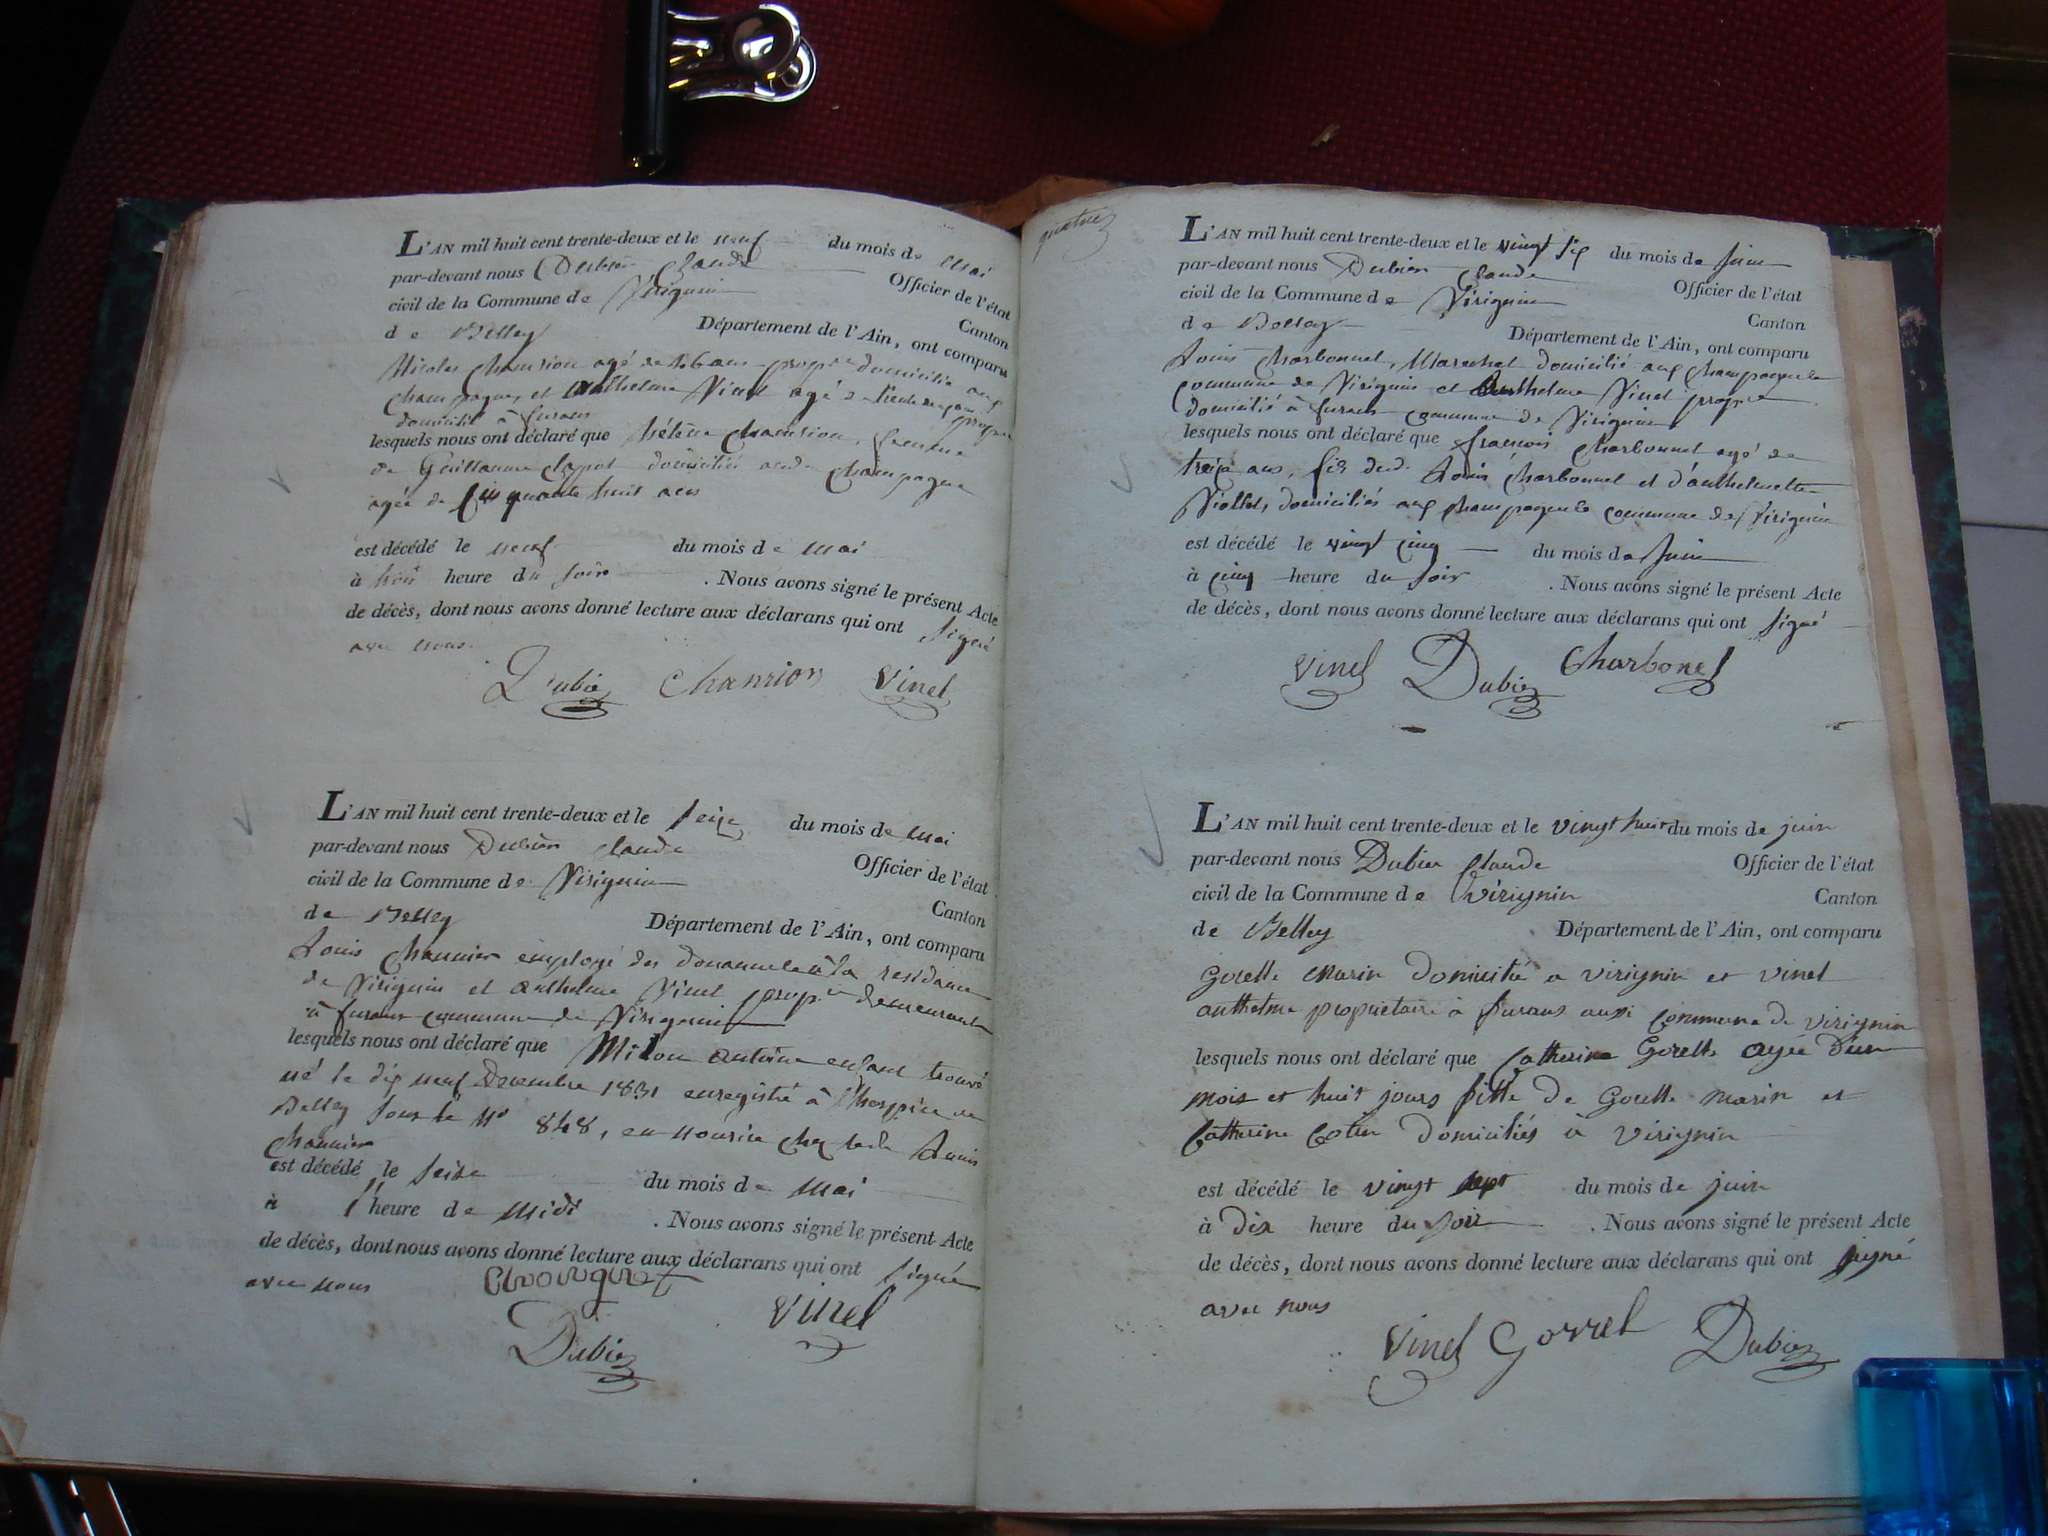 L'AN mil huit cent trente-deux et le neuf du mois de mai
par-devant nous Dubien Claude Officier de l'état
civil de la Commune de Virignin Canton
de Belley Département de l'Ain, ont comparu
Nicolas Chamrion agé de ans domicilié aux
Champagnes, et Anthelme Vinel agé de
domicilié à furans
lesquels nous ont déclaré que hélène Chamrion, femme
de Guillaume domiciliés Champagne
agée de Cinquante huit ans
est décédé le neuf du mois de mai
à huit heure du soir . Nous avons signé le présent Acte
de décès, dont nous avons donné lecture aux déclarans qui ont signé
avec nous.
Dubien Chamrion Vinel
L'AN mil huit cent trente-deux et le seize du mois de mai
par-devant nous Dubien Claude Officier de l'état
civil de la Commune de Virignin Canton
de Belley Département de l'Ain, ont comparu
Louis employé des à la residance
de Virignin et anthelme Vinel propre demeurant
à furans commune de Virignin
lesquels nous ont déclaré que Milou antoine enfant trouvé
né le dix neuf Decembre 1831 enregistré à l'hospice de
Belley sous le No 848, en nourice chez Louis
est décédé le seize du mois de mai
à heure de midi . Nous avons signé le présent Acte
de décès, dont nous avons donné lecture aux déclarans qui ont signé
avec nous
Dubien Vinel
quatre
L'AN mil huit cent trente-deux et le vingt six du mois de juin
par-devant nous Dubien Claude Officier de l'état
civil de la Commune de Virignin Canton
de Belley Département de l'Ain, ont comparu
Louis Charbonnel, Marechal domicilié aux Champagnes
commune de Virignin et Anthelme Vinel propre
domicilié à furans commune de Virignin
lesquels nous ont déclaré que francois Charbonnel agé de
treize ans, fils dud. Louis Charbonnel et d'anthelmette
Viollet, domiciliés aux Champagnes commune de Virignin
est décédé le vingt cinq du mois de juin
à cinq heure du soir . Nous avons signé le présent Acte
de décès, dont nous avons donné lecture aux déclarans qui ont signé
Vinel Dubien Charbonel
L'AN mil huit cent trente-deux et le vingt huit du mois de juin
par-devant nous Dubien Claude Officier de l'état
civil de la Commune de virignin Canton
de Belley Département de l'Ain, ont comparu
Gorelle marin Domicilié a virignin et vinel
anthelme propriétaire à furans aussi commune de virignin
lesquels nous ont déclaré que Catherine Gorelle agée d'un
mois et huit jours fille de Gorelle marin et
Catherine Domiciliés à virignin
est décédé le vingt sept du mois de juin
à dix heure du soir . Nous avons signé le présent Acte
de décès, dont nous avons donné lecture aux déclarans qui ont signé
avec nous
Vinel Gorrel Dubien